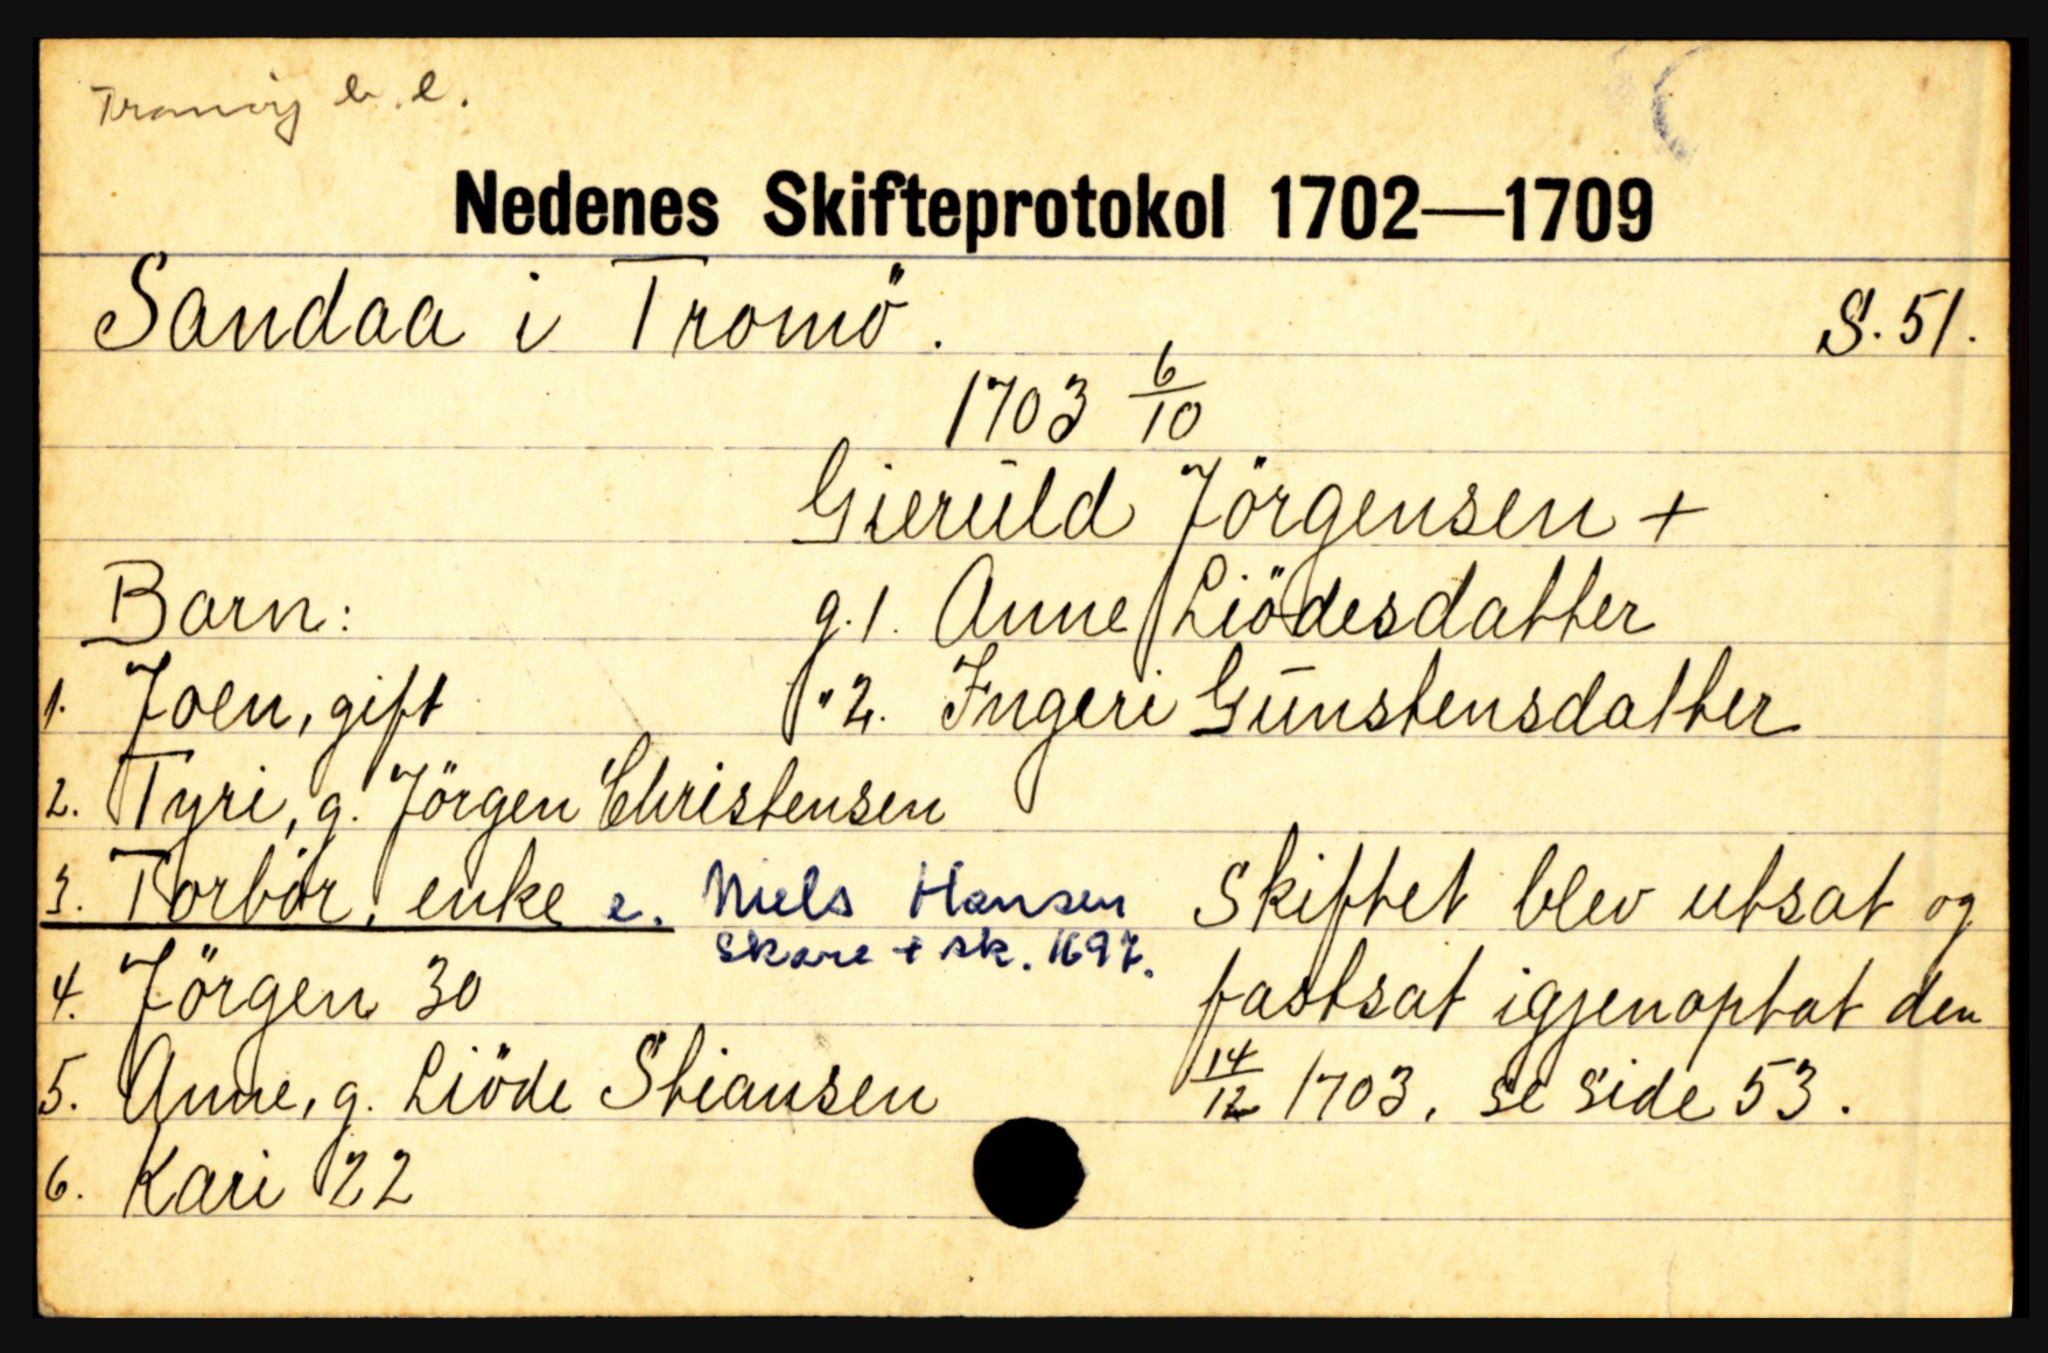 Nedenes Skifteprotokol 1702—1709
Sandaa i Tromö. S. 51.
1703 6/10
Gierŭld Jörgensen +
Barn: g. 1. Anne Liödesdatter
1. Joen, gift " 2. Ingeri Gŭnstensdatter
2. Tyri, g. Jörgen Christensen
3. Torbör, enke e. Niels Hansen
Skare + sk. 1697.
Skiftet blev utsat og
4. Jörgen 30
fastsat igjenoptat den
5. Anne, g. Liöde Stiansen
14/12 1703. se side 53.
6. Kari 22